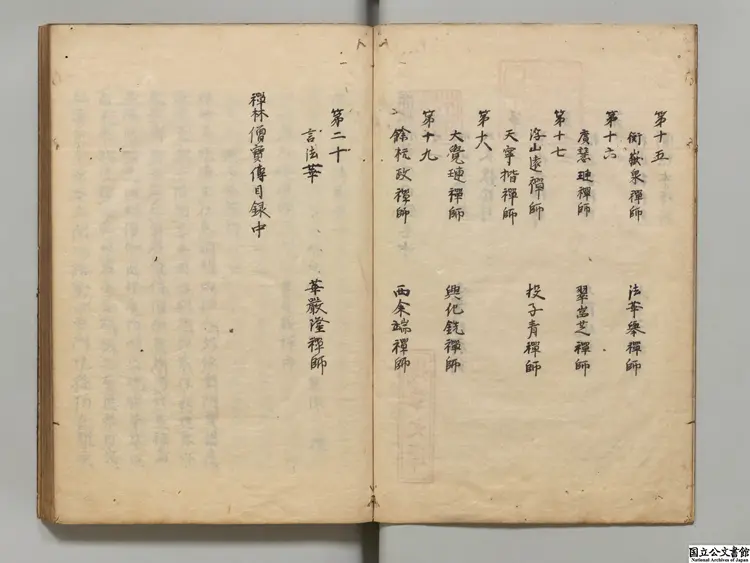 第十五
衡嶽泉禪師　法華舉禪師
第十六
廣慧璉禪師　翠嵓芝禪師
第十七
浮山遠禪師　投子青禪師
天寧楷禪師
第十八
大覺璉禪師　興化銑禪師
第十九
餘杭政禪師　西余端禪師
第二十
言法華　華嚴隆禪師
禪林僧寶傳目録中
国立公文書館
National Archives of Japan